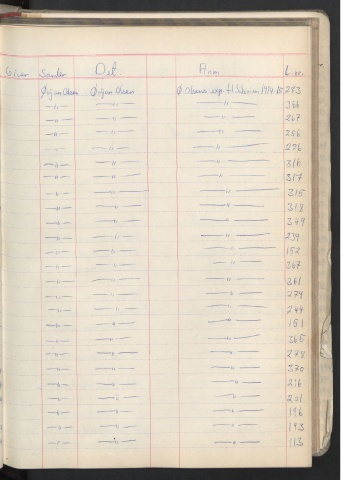 Giver Samler Det. Anm. L. nr.
Ørjan Olsen Ørjan Olsen Ø. Olsens exp. til Siberien 1914-15 283
—„— —„— —„— 366
—„— —„— —„— 267
—„— —„— —„— 286
—„— —„— —„— 276
—„— —„— —„— 316
—„— —„— —„— 317
—„— —„— —„— 315
—„— —„— —„— 318
—„— —„— —„— 349
—„— —„— —„— 239
—„— —„— —„— 152
—„— —„— —„— 367
—„— —„— —„— 361
—„— —„— —„— 279
—„— —„— —„— 244
—„— —„— —„— 151
—„— —„— —„— 365
—„— —„— —„— 278
—„— —„— —„— 370
—„— —„— —„— 216
—„— —„— —„— 201
—„— —„— —„— 196
—„— —„— —„— 193
—„— —„— —„— 113